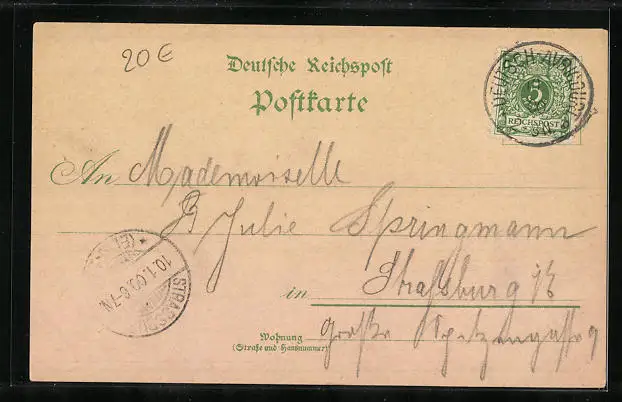 20€
Deutsche Reichspost
Postkarte
DEUTSCH-AVRICOURT
5
REICHSPOST
An Mademoiselle
Julie Springmann
in Strassburg i/E
Wohnung
(Straße und Hausnummer)
Große Spitzengasse 9
STRASSBU
10.1.00.6-7N